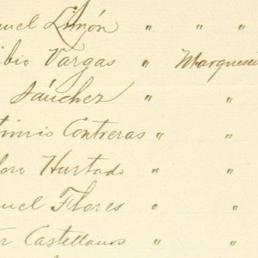 uel Limón " " "
ibio Vargas " Marquese
Sánchez " "
timio Contreras " "
doro Hurtado " "
uel Flores " "
Castellanos " "